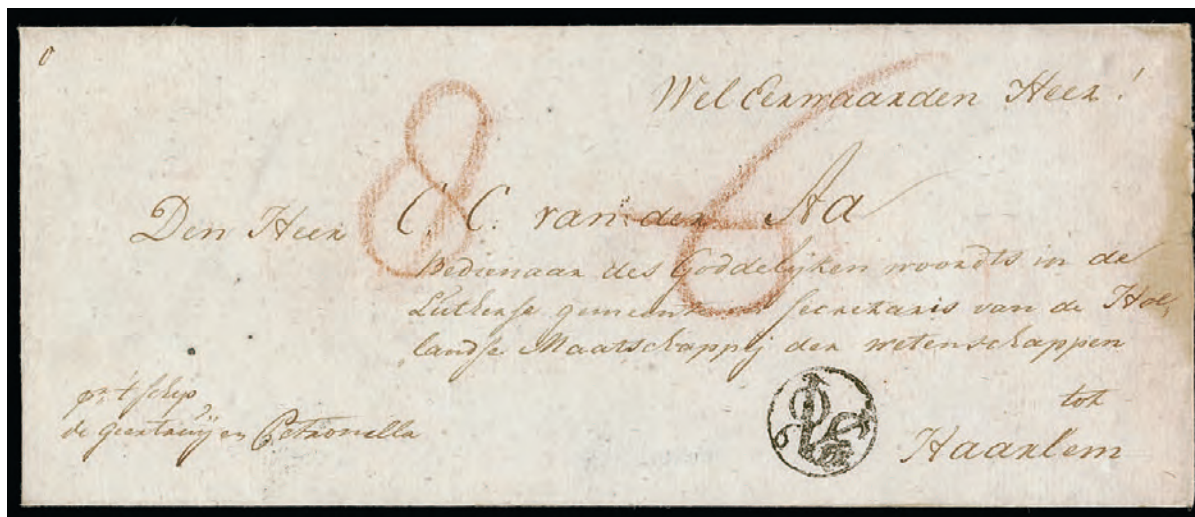 8 6
Wel Eerwaarden Heer!
Den Heer C. C. van der Aa
Bedienaar des Goddelijken woordts in de
Lutherse gemeente Secretaris van de Hol,
landse Maatschappij der wetenschappen
tot
Haarlem
pr. t schip
de Geertruij en Petronella